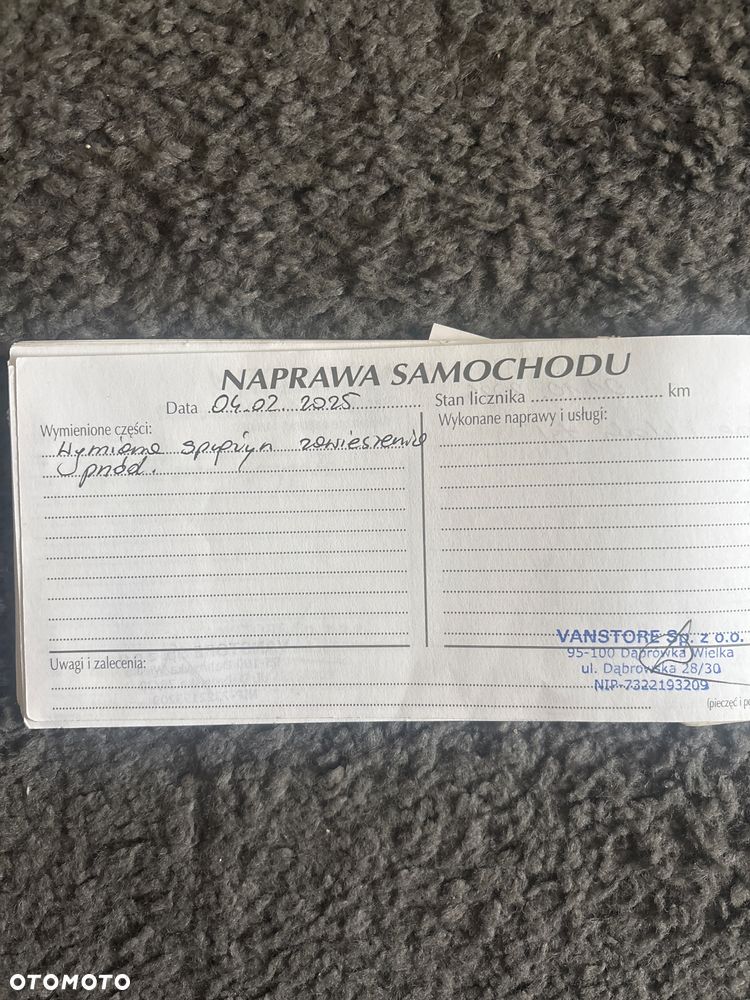 NAPRAWA SAMOCHODU
Data 04.02.2025 Stan licznika km
Wymienione części: Wykonane naprawy i usługi:
Wymiana sprężyn zawieszenia
przód.
VANSTORE Sp. z o.o.
95-100 Dąbrówka Wielka
ul. Dąbrowska 28/30
NIP-7322193209
Uwagi i zalecenia:
(pieczęć i po
OTOMOTO